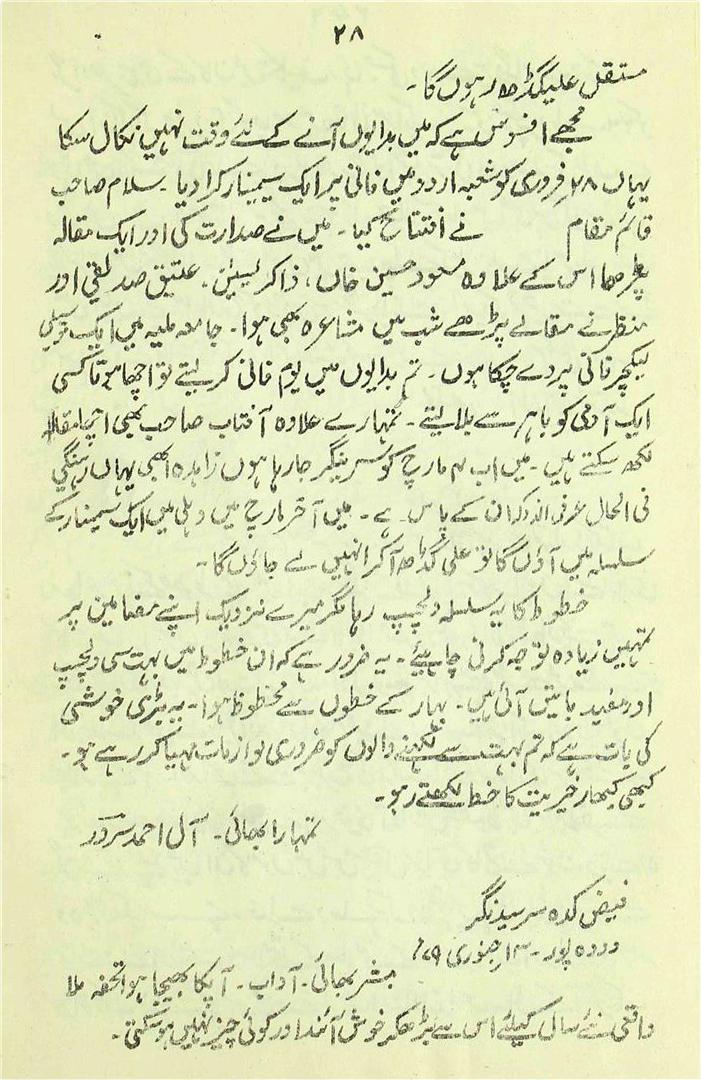 ۲۸
مستقل علیگڑھ رہوں گا۔
مجھے افسوس ہے کہ میں بدایوں آنے کے لئے وقت نہیں نکال سکا
یہاں ۲۸؍ فروری کو شعبہ اردو میں فانی پر ایک سیمینار کرا دیا۔ سلام صاحب
قائم مقام نے افتتاح کیا۔ میں نے صدارت کی اور ایک مقالہ
پڑھا اس کے علاوہ مسعود حسین خاں، ذاکر، عتیق صدیقی اور
منظر نے مقالے پڑھے شب میں مشاعرہ بھی ہوا۔ جامعہ ملیہ میں ایک توسیعی
لیکچر فانی پر دے چکا ہوں۔ تم بدایوں میں یوم فانی کر لیتے تو اچھا ہوتا کسی
ایک آدمی کو باہر سے بلا لیتے۔ تمہارے علاوہ آفتاب صاحب بھی اچھا مقالہ
لکھ سکتے ہیں۔ میں اب مارچ کو سرینگر جا رہا ہوں زاہدہ ابھی یہاں رہینگی
فی الحال ان کے پاس ہے۔ میں آخر مارچ میں دہلی میں ایک سیمینار کے
سلسلہ میں آؤں گا تو علی گڑھ آکر انہیں لے جاؤں گا۔
خطوط کا یہ سلسلہ دلچسپ رہا مگر میرے نزدیک اپنے مضامین پر
تمہیں زیادہ توجہ کرنی چاہیئے۔ یہ ضرور ہے کہ ان خطوط میں بہت سی دلچسپ
اور مفید باتیں آئی ہیں۔ بہار کے خطوں سے محظوظ ہوا۔ یہ بڑی خوشی
کی بات ہے کہ تم بہت سے لکھنے والوں کو ضروری لوازمات مہیا کر رہے ہو۔
کبھی کبھار خیریت کا خط لکھتے رہو۔
تمہارا بھائی۔ آل احمد سرور
فیض کدہ سرسید نگر
دودہ پور۔ جنوری ۷۹ء
مبشر بھائی۔ آداب۔ آپکا بھیجا ہوا تحفہ ملا
واقعی نئے سال کیلئے اس سے بڑھکر خوش آئند اور کوئی چیز نہیں ہو سکتی۔